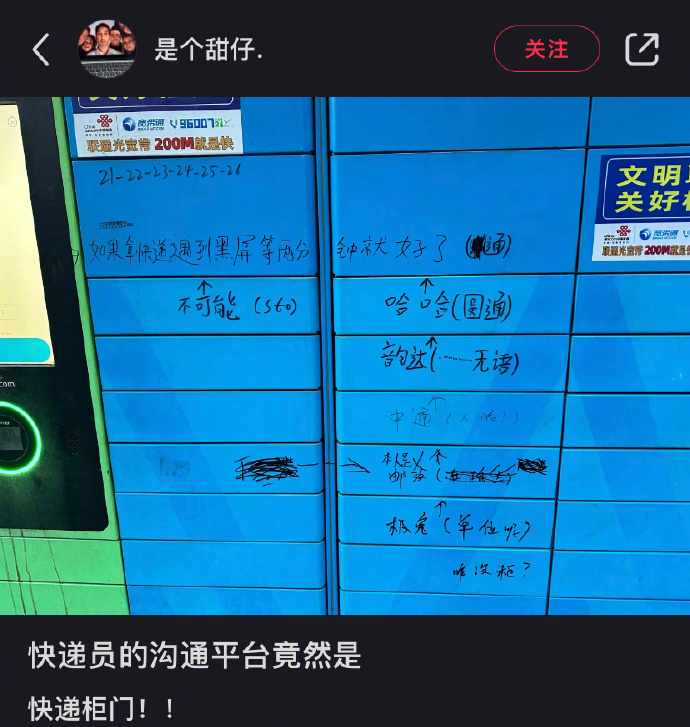 是个甜仔.
关注
联通光宽带 200M就是快
96007
文明
关好
宽带通
200M就是快
21-22-23-24-25-26
如果拿快递遇到黑屏等两分钟就好了(通)
不可能(sto)
哈哈(圆通)
韵达(……无语)
中通
邮政
极兔(单位呢)
谁没柜?
.com
快递员的沟通平台竟然是
快递柜门！！